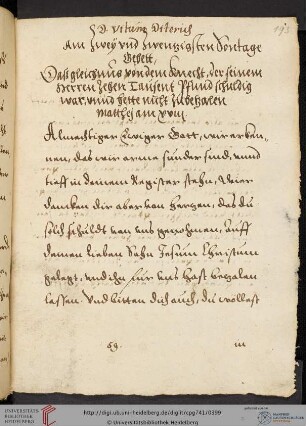 193
D. Vitum Diterich
Am zwey vnd zwenzigsten Sontage
Gebett,
Das gleichnus von dem knecht, der seinem
herren zehen Tausent pfund schuldig
war, vnnd hette nicht zubezalen
Matthej am xviij
Almechtiger Ewiger Gott, wir erken-
nen, das wir arme sünder sind, vnnd
tieff in deinem Register stehn, Wier
dancken dir aber von herzen, das du
solch schuldt von vns genohmen, auff
deinen lieben Sohn Jesum Christum
gelegt, vnd ihn für vns hast bezalen
lassen. Vnd bitten dich auch, du wollest
69.
m
UNIVERSITÄTS-
BIBLIOTHEK
HEIDELBERG
http://digi.ub.uni-heidelberg.de/diglit/cpg741/0399
© Universitätsbibliothek Heidelberg